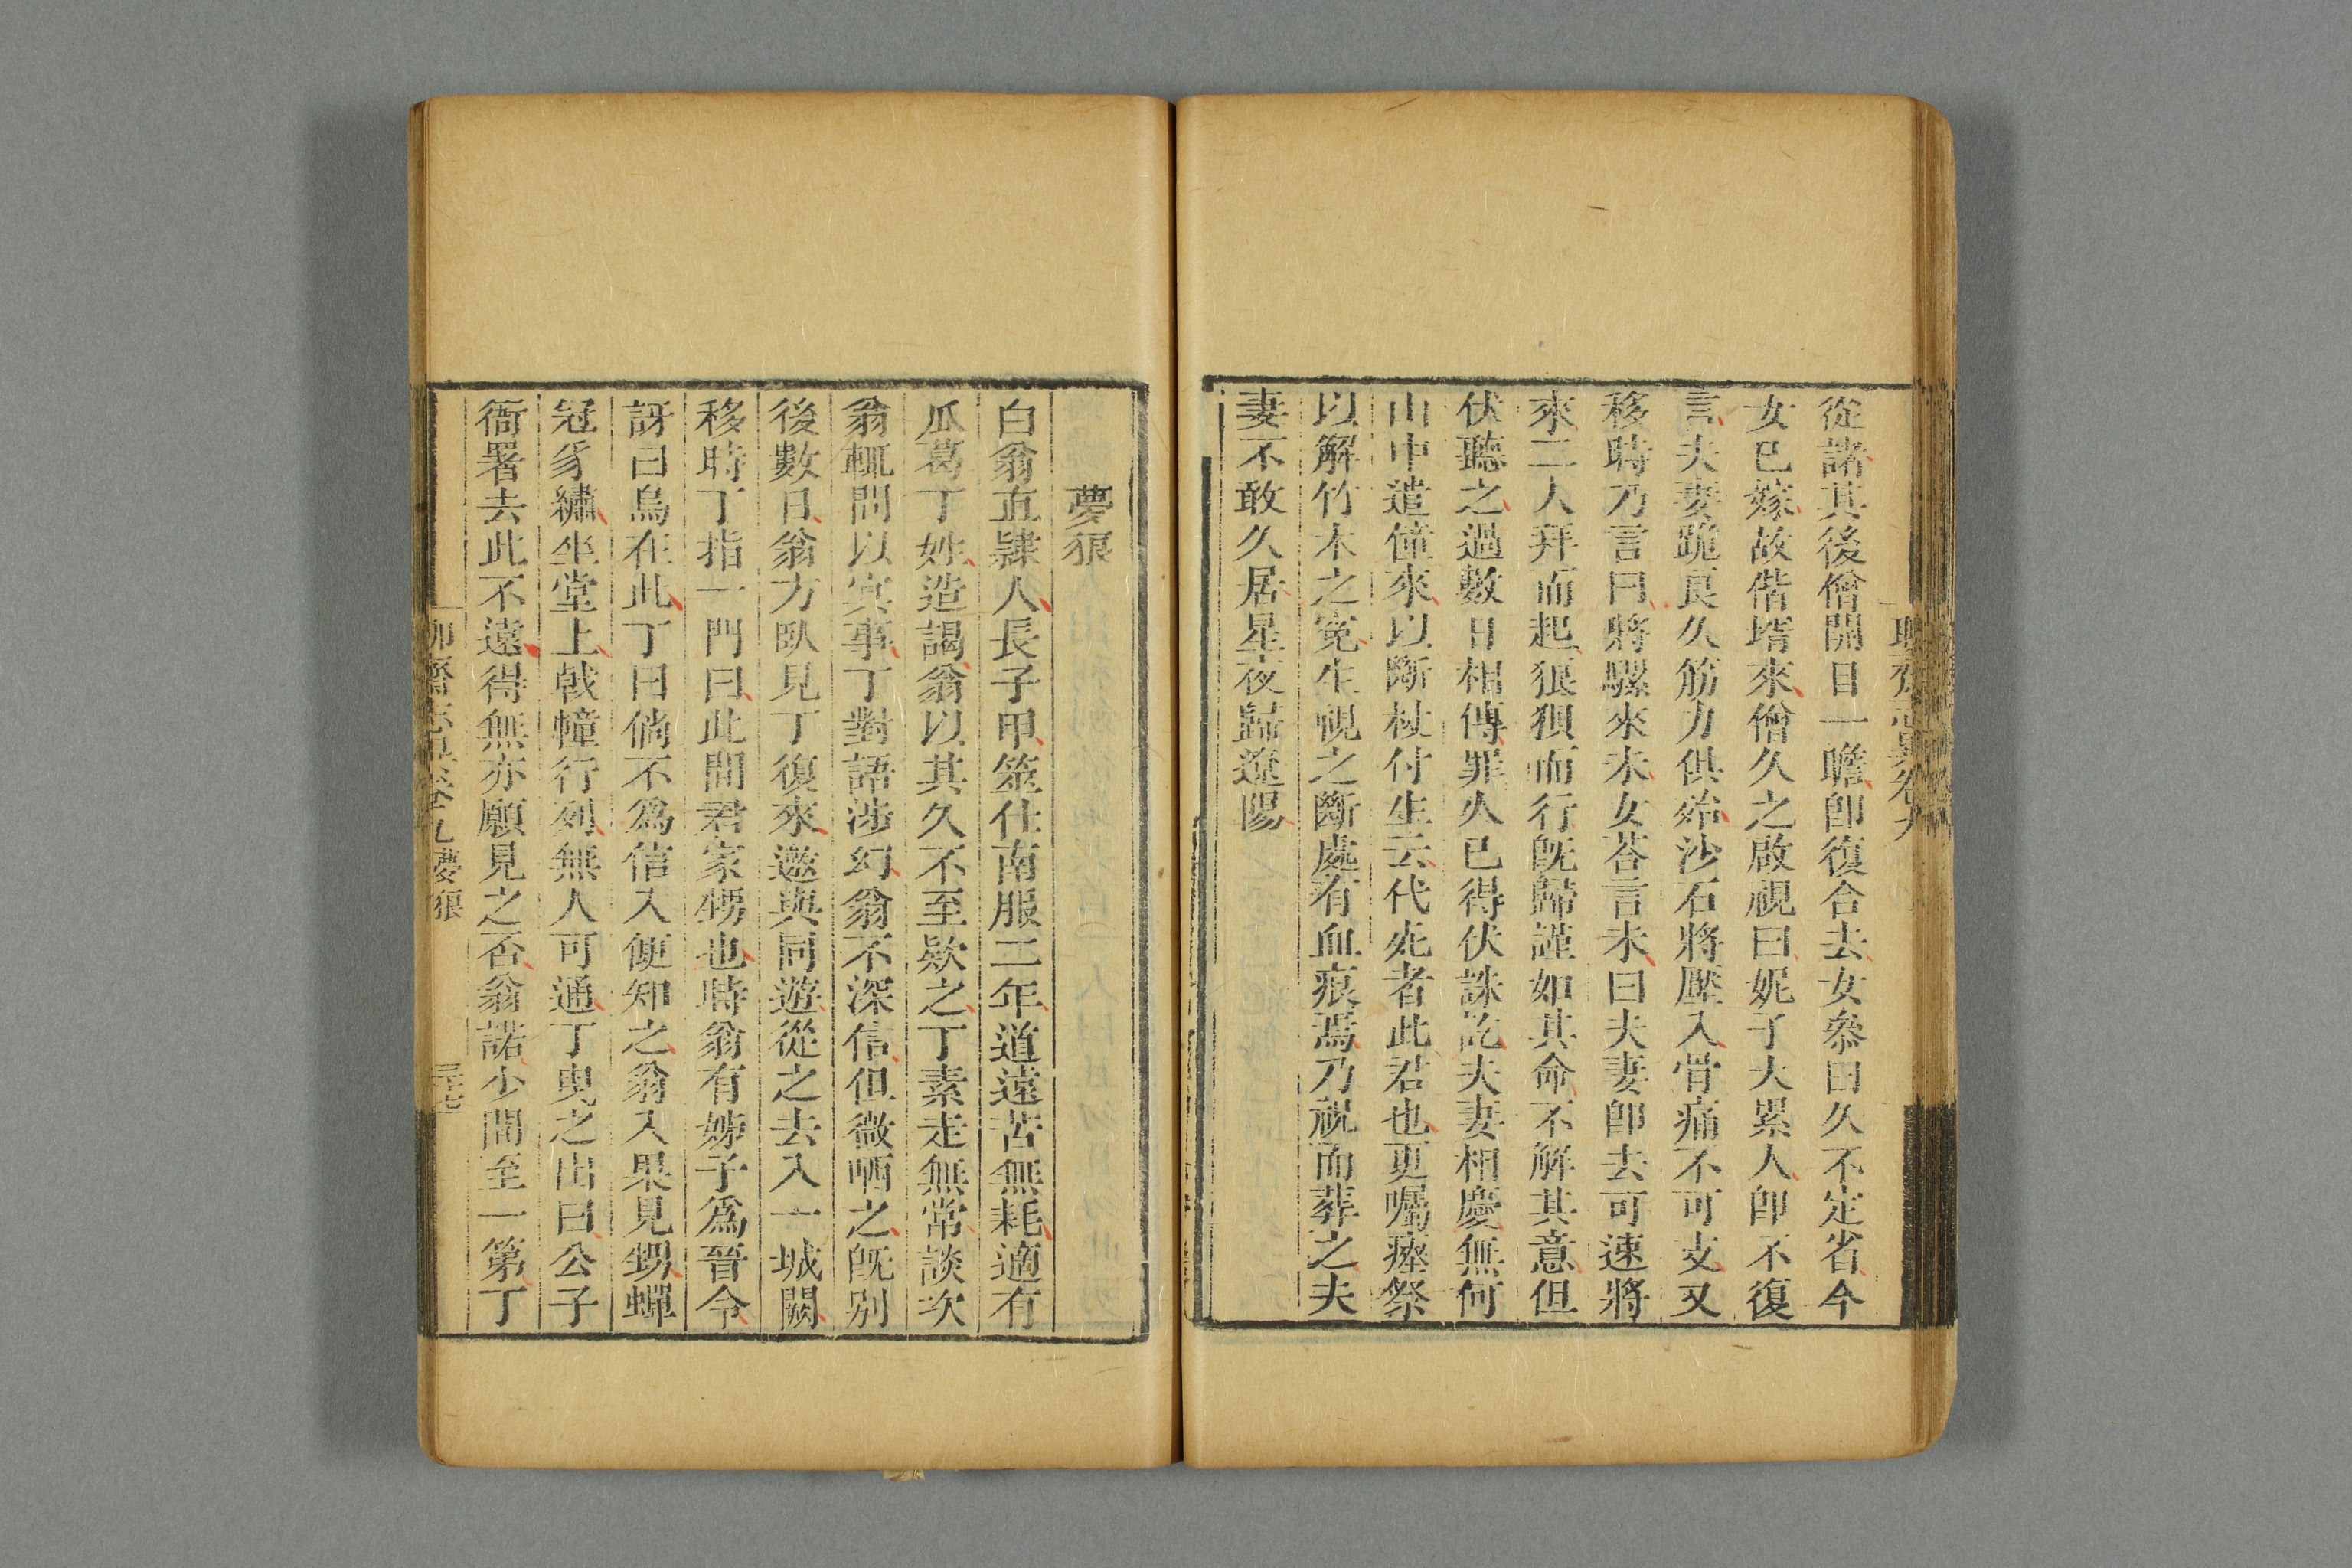 聊齋志異卷九
從諸其後僧開目一瞻卽復合去女參曰久不定省今
女已嫁故偕壻來僧久之啟視曰妮子大累人卽不復
言夫妻跪良久筋力俱殆沙石將壓入骨痛不可支又
移時乃言曰將騾來未女荅言未曰夫妻卽去可速將
來二人拜而起狼狽而行旣歸謹如其命不解其意但
伏聽之過數日相傳罪人已得伏誅訖夫妻相慶無何
山中遣僮來以斷杖付生云代死者此君也更囑瘞祭
以解竹木之冤生視之斷處有血痕焉乃祝而葬之夫
妻不敢久居星夜歸遼陽
夢狼
白翁直隷人長子甲筮仕南服二年道遠苦無耗適有
瓜葛丁姓造謁翁以其久不至欵之丁素走無常談次
翁輒問以冥事丁對語涉幻翁不深信但微哂之旣別
後數日翁方臥見丁復來邀與同遊從之去入一城闕
移時丁指一門曰此間君家甥也時翁有姊子爲晉令
訝曰烏在此丁曰倘不爲信入便知之翁入果見甥蟬
冠豸繡坐堂上戟幢行列無人可通丁曳之出曰公子
衙署去此不遠得無亦願見之否翁諾少間至一第丁
聊齋志異卷九 夢狼 三十七